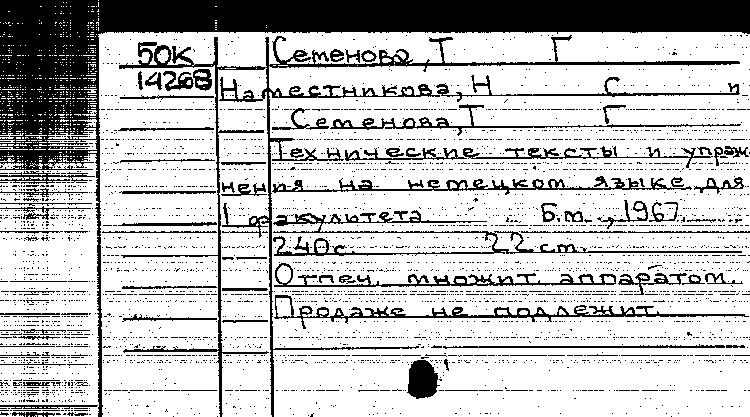 50К Семенова, Т Г
14268 Наместникова, Н С и
Семенова, Т Г
Технические тексты и упраж
нения на немецком языке для
1 факультета Б.м., 1967.
240с. 22 см.
Отпеч. множит. аппаратом.
Продаже не подлежит.